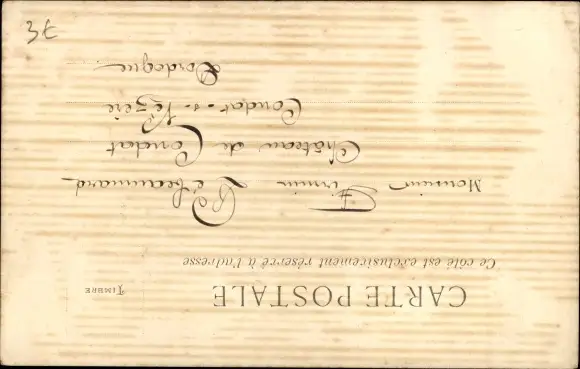 CARTE POSTALE
TIMBRE
Ce côté est exclusivement réservé à l'adresse
Monsieur Firmin
Château de Condat
Condat-s-Vézère
Dordogne